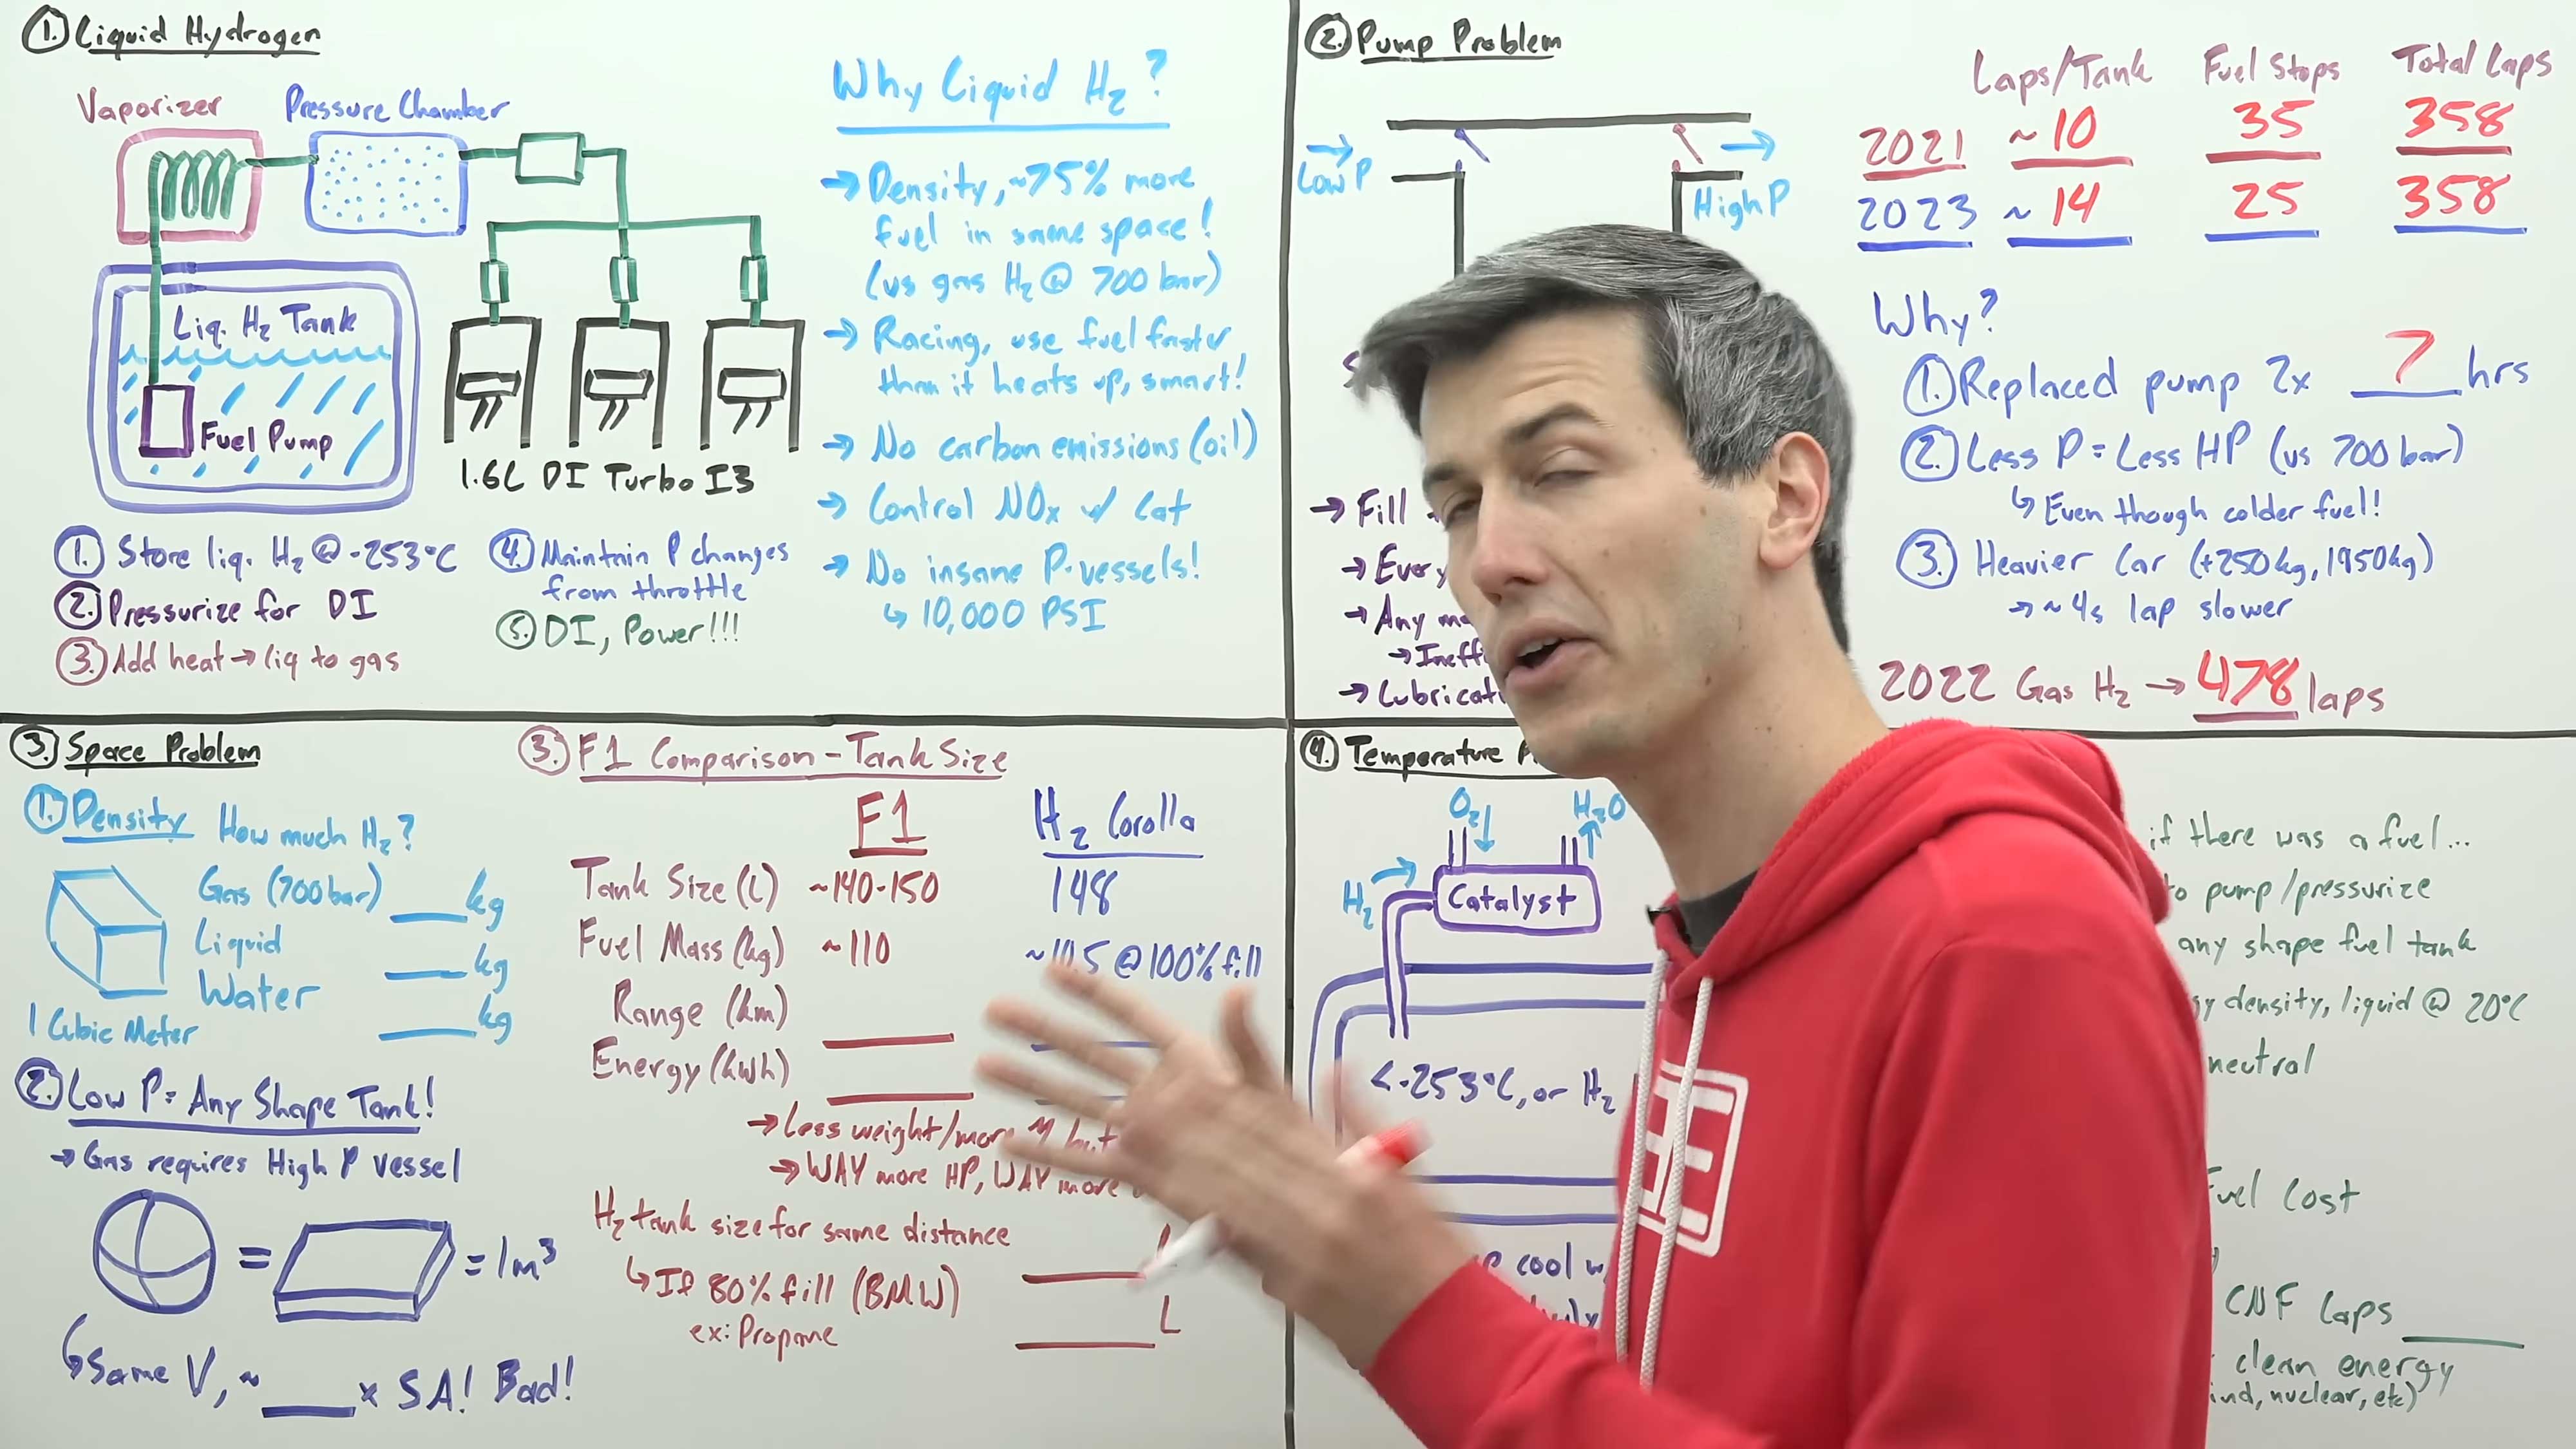 1. Liquid Hydrogen
Vaporizer
Pressure Chamber
Liq. H₂ Tank
Fuel Pump
1.6L DI Turbo I3
1. Store liq. H₂ @ -253°C
2. Pressurize for DI
3. Add heat → liq to gas
4. Maintain P changes
from throttle
5. DI, Power!!!
Why Liquid H₂?
→ Density, ~75% more
fuel in same space!
(vs gas H₂ @ 700 bar)
→ Racing, use fuel faster
than it heats up, smart!
→ No carbon emissions (oil)
→ Control NOx w/ cat
→ No insane P-vessels!
↳ 10,000 PSI
2. Pump Problem
Low P
High P
→ Fill
→ Every
→ Any
→
→
Laps/Tank Fuel Stops Total Laps
2021 ~10 35 358
2023 ~14 25 358
Why?
1. Replaced pump 2x 7 hrs
2. Less P = Less HP (vs 700 bar)
↳ Even though colder fuel!
3. Heavier Car (+250kg, 1950kg)
→ ~4s lap slower
2022 Gas H₂ → 478 laps
3. Space Problem
1. Density How much H₂?
Gas (700 bar) ___ kg
Liquid ___ kg
Water ___ kg
1 Cubic Meter
2. Low P = Any Shape Tank!
→ Gas requires High P vessel
= = 1m³
↳ Same V, ~ ___ x SA! Bad!
3. F1 Comparison - Tank Size
F1 H₂ Corolla
Tank Size (L) ~140-150 148
Fuel Mass (kg) ~110 @ 100% fill
Range (km)
Energy (kWh)
→ Less weight/more
→ WAY more HP, WAY more
H₂ tank size for same distance
↳ If 80% fill (BMW)
ex: Propane
L
4. Temperature
O₂
H₂O
H₂
Catalyst
< -253°C, or H₂
cool
if there was a fuel...
to pump/pressurize
any shape fuel tank
density, liquid @ 20°C
neutral
Fuel Cost
CNF Laps ___
clean energy
nuclear, etc)